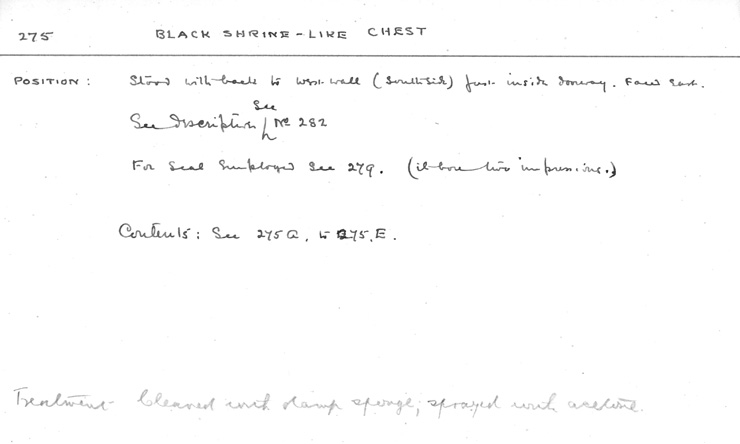 275 BLACK SHRINE-LIKE CHEST
POSITION : Stood with back to west wall (South side) just inside doorway. Faced East.
See
See description / No 282
For Seal Employed See 279. (it bore two impressions.)
Contents: See 275 A, to 275, E.
Treatment Cleaned with damp sponge; sprayed with acetone.